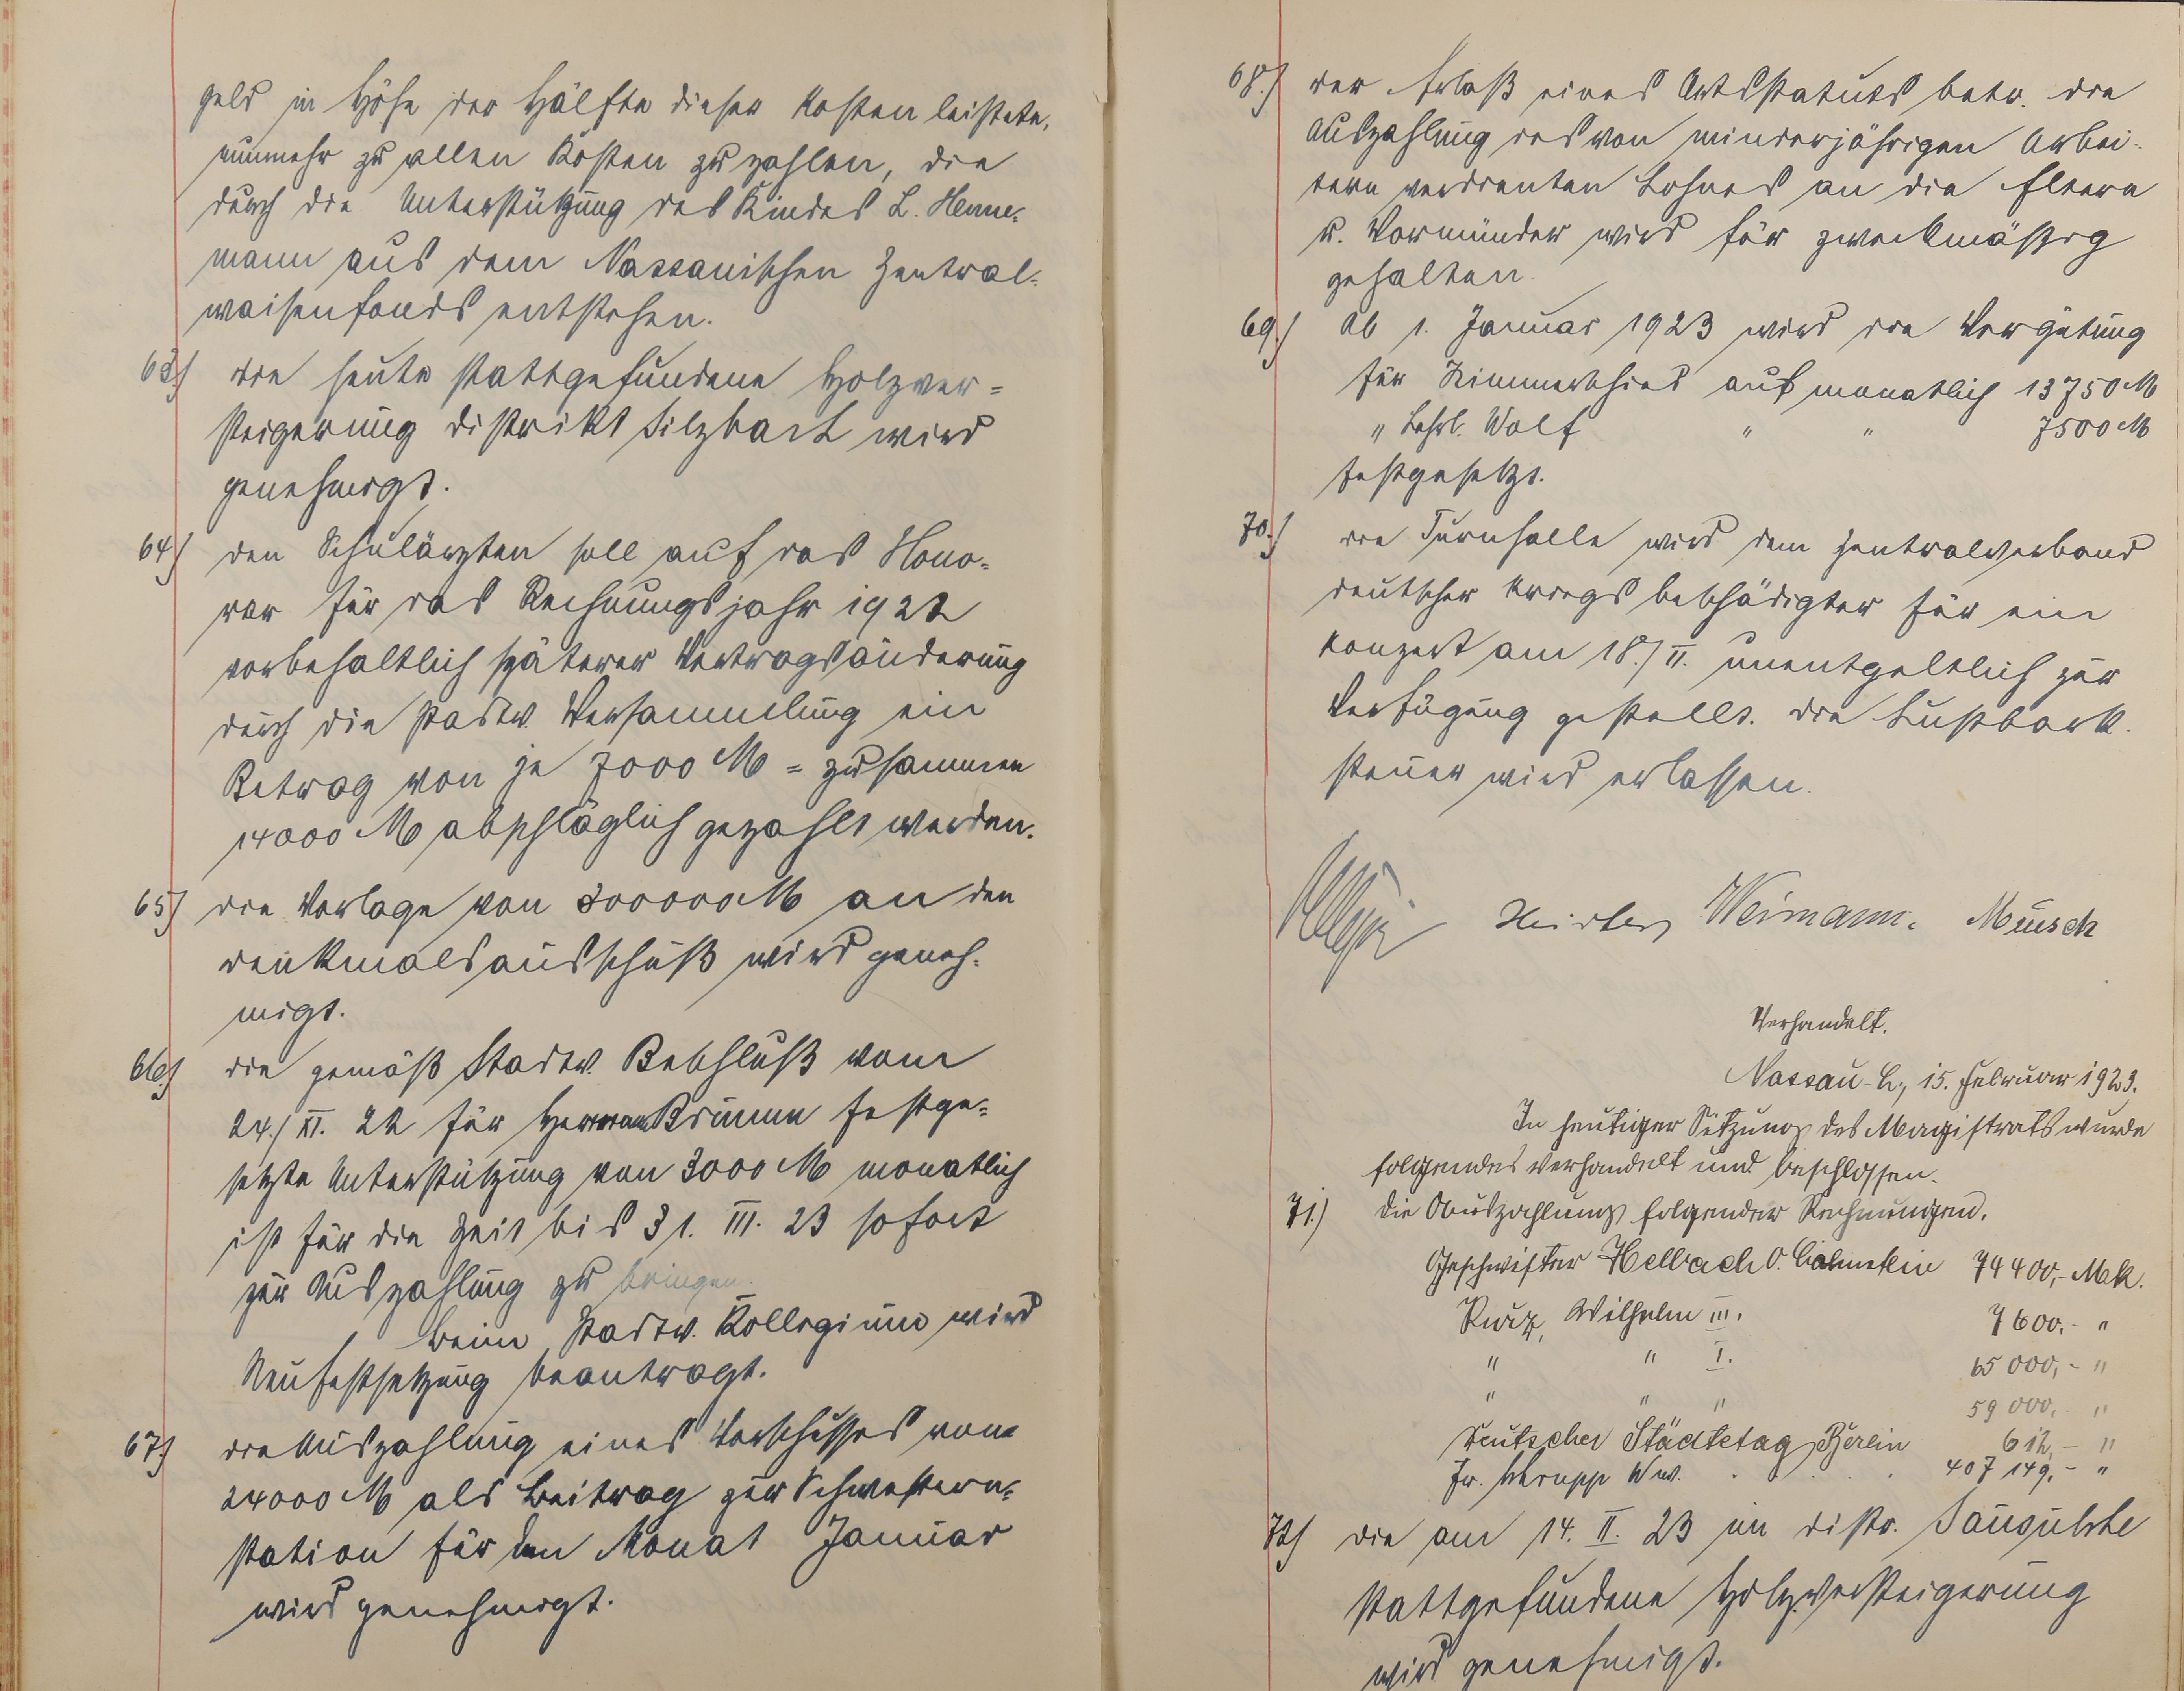 geld in Höhe der Hälfte dieser Kosten leistete,
nunmehr zu allen Kosten zu zahlen, die
durch die Unterstützung des Kindes L. Henne-
mann aus dem Nassauischen Zentral-
waisenfonds entstehen.
63) die heute stattgefundene Holzver=
steigerung Distrikt Silzbach wird
genehmigt.
64) den Schulärzten soll auf das Hono-
rar für das Rechnungsjahr 1922
vorbehaltlich späterer Vertragsänderung
durch die Stadtv. Versammlung ein
Betrag von je 7000 M = zusammen
14000 M abschläglich gezahlt werden.
65) die Vorlage von 300000 M an den
Denkmalsausschuß wird geneh-
migt.
66) die gemäß Stadtv. Beschluß vom
24./XI. 22 für Hermann Brumm festge-
setzte Unterstützung von 3000 M monatlich
ist für die Zeit bis 31. III. 23 sofort
zur Auszahlung zu bringen.
Beim Stadtv. Kollegium wird
Neufestsetzung beantragt.
67) die Auszahlung eines Vorschusses von
24000 M als Beitrag zur Schwestern-
station für den Monat Januar
wird genehmigt.
68.) der Erlaß eines Ortsstatuts betr. die
Auszahlung des von minderjährigen Arbei-
tern verdienten Lohnes an die Eltern
u. Vormünder wird für zweckmäßig
gehalten.
69.) Ab 1. Januar 1923 wird die Vergütung
für auf monatlich 13750 M
" Lehrl. Wolf " " 7500 M
festgesetzt.
70.) die Turnhalle wird dem Zentralverband
deutscher Kriegsbeschädigter für ein
Konzert am 18./II. unentgeltlich zur
Verfügung gestellt. die Lustbark.
steuer wird erlassen.
Weimann. Müsch
Verhandelt.
Nassau-L., 15. Februar 1923.
In heutiger Sitzung des Magistrats wurde
folgendes verhandelt und beschlossen.
71.) Die Auszahlung folgender Rechnungen.
Geschwister Helbach 74400,- Mk.
Kurz, Wilhelm III. 7600.- "
" " I. 65000,- "
" " " 59000,- "
Deutscher Städtetag, Berlin 612,- "
Fr. Schrupp Ww. . . . . 407149,- "
72) die am 14. II. 23 im Distr.
stattgefundene Holzversteigerung
wird genehmigt.